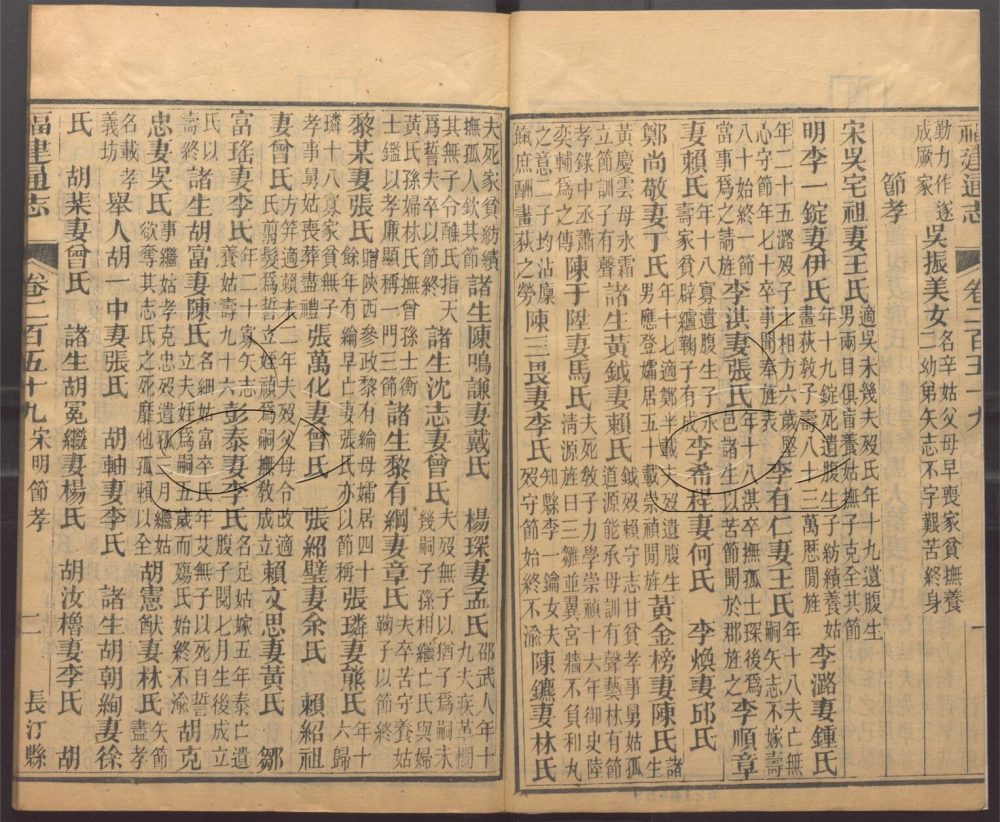 福建通志
卷二百五十九
一
勤力作遂成厥家 吳振美女 名辛姑父母早喪家貧撫養二幼弟矢志不字艱苦終身
節孝
宋吳宅祖妻王氏 適吳未幾夫歿氏年十九遺腹生男兩目俱盲養姑撫子克全其節
明李一錠妻伊氏 年十九錠死遺腹生子紡績養姑畫荻敎子壽八十三萬厯間旌 李潞妻鍾氏
年二十五潞歿子士相方六歲堅心守節年七十卒事聞奉旌表 李有仁妻王氏 年十八夫亡無嗣矢志不嫁壽
八十始終一節當事為之請旌 李淇妻張氏 年十八淇卒撫孤士琛後為邑諸生以苦節聞於郡旌之 李順章
妻賴氏 年十八寡遺腹生子永壽家貧辟纑鞠子有成 李希程妻何氏 李煥妻邱氏
鄭尚敬妻丁氏 年十七適鄭半載夫歿遺腹生男應登孀居五十載崇禎間旌 黃金榜妻陳氏 諸生
黃慶雲母氷霜立節訓子有聲 諸生黃鉞妻賴氏 鉞歿賴守志甘貧孝事舅姑孤道源能承母訓有聲藝林有節
孝錄中丞蕭奕輔為之傳 陳于陞妻馬氏 夫死敎子力學崇禎十六年御史陸清源旌曰三雛並異宮牆不負和丸
之意二子均沾廩餼庶酬畫荻之勞 陳三畏妻李氏 知縣李一鑰女夫歿守節始終不渝 陳鑣妻林氏
夫死家貧紡績撫孤人欽其節 諸生陳鳴謙妻戴氏 楊琛妻孟氏 邵武人年十九夫疾革憫
其無子令醮氏指天為誓夫卒以節終 諸生沈志妻曾氏 夫歿無子以猶子為嗣未幾嗣子孫相繼亡氏與婦
黃氏孫婦林氏撫曾孫士鑑以孝廉顯稱一門三節 諸生黎有綱妻章氏 夫卒苦守養姑鞠子以節終
黎某妻張氏 贈陝西參政黎有綸母孀居四十餘年有綸早亡妻張氏亦以節稱 張璘妻熊氏 六歸
璘十八寡家貧無子孝事舅姑喪葬盡禮 張萬化妻曾氏 張紹璧妻余氏 賴紹祖
妻曾氏 方笄適賴去二年夫歿父母令改適氏翦髮為誓立姪禎為嗣撫敎成立 賴文思妻黃氏 鄒
富瑤妻李氏 年二十富矢志養姑壽九十六 彭泰妻李氏 名足姑嫁五年泰亡遺腹子閱七月生後成立
氏以壽終 諸生胡富妻陳氏 名細姑富卒氏年艾無子以死自誓立夫姪為嗣五歲而殤氏始終不渝 胡克
忠妻吳氏 事繼姑孝克忠歿遺孤二月繼姑欲奪其志氏之死靡他孤賴以全 胡憲猷妻林氏 盡孝矢節
名載孝義坊 舉人胡一中妻張氏 胡軸妻李氏 諸生胡朝絢妻徐
氏 胡葉妻曾氏 諸生胡冕繼妻楊氏 胡汝櫓妻李氏 胡
福建通志
卷二百五十九 宋明節孝
二
長汀縣